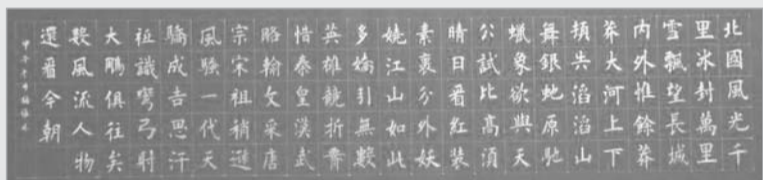 北國風光千
里冰封萬里
雪飄望長城
内外惟餘莽
莽大河上下
頓失滔滔山
舞銀蛇原馳
蠟象欲與天
公試比高須
晴日看紅裝
素裹分外妖
嬈江山如此
多嬌引無數
英雄競折腰
惜秦皇漢武
略輸文采唐
宗宋祖稍遜
風騷一代天
驕成吉思汗
祗識彎弓射
大鵰俱往矣
數風流人物
還看今朝